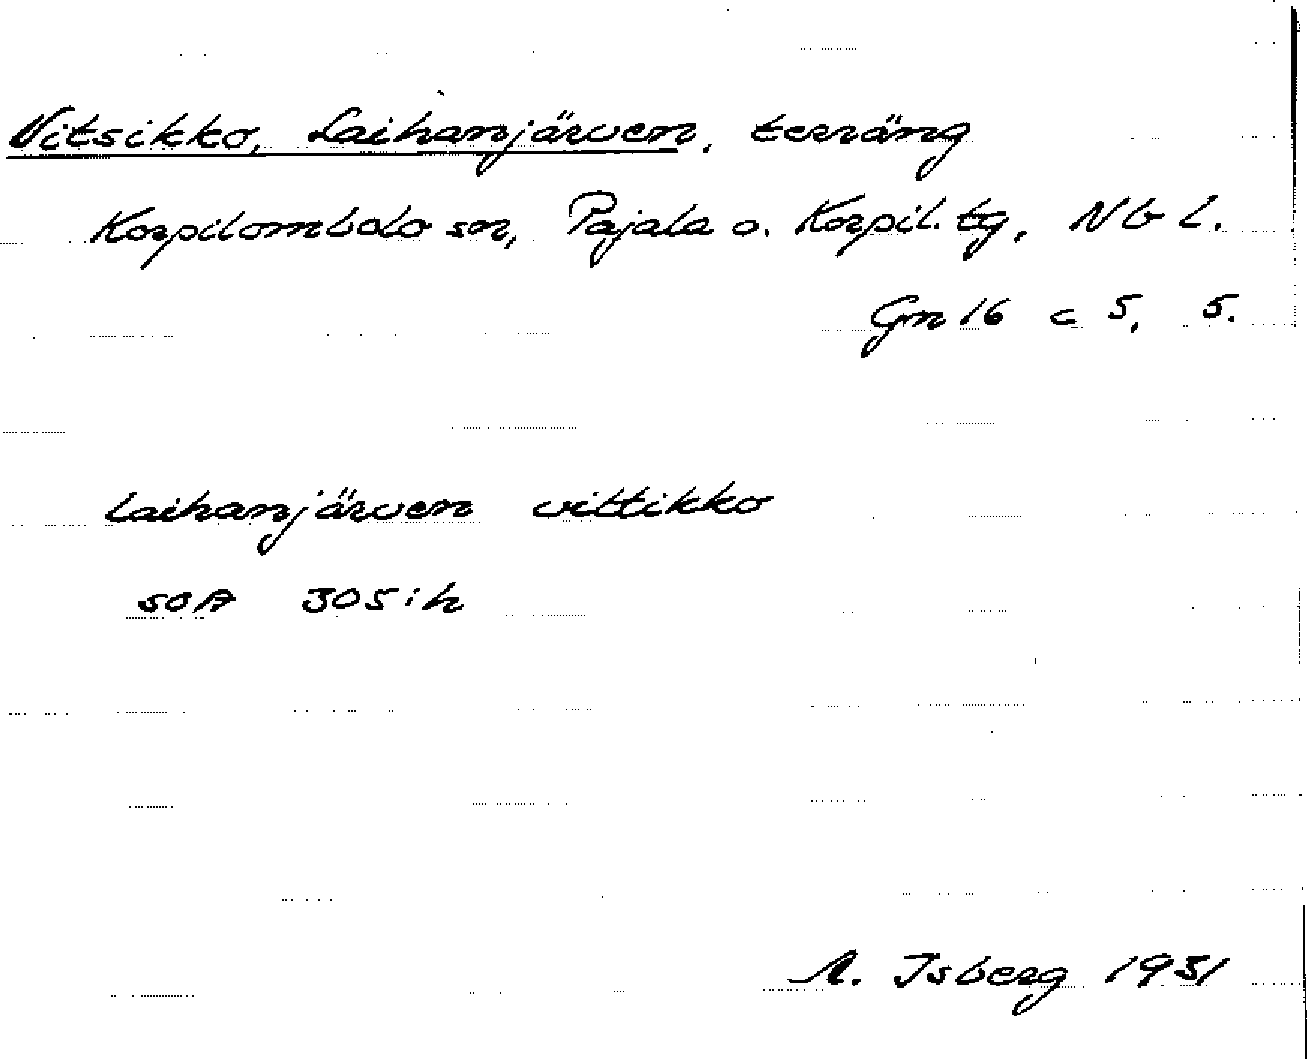 Vitsikko, Laihanjärven, terräng
Korpilombolo sn, Pajala o. Korpil. tg, Nb L.
Gn 16 c 5, 5.
Laihanjärven vittikko
SOA 305:h
A. Isberg 1931